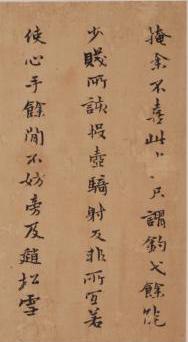 掩余不喜此只謂釣弋餘能
少賤所談投壺騎射反非所宜若
使心手餘閒不妨旁及趙松雪